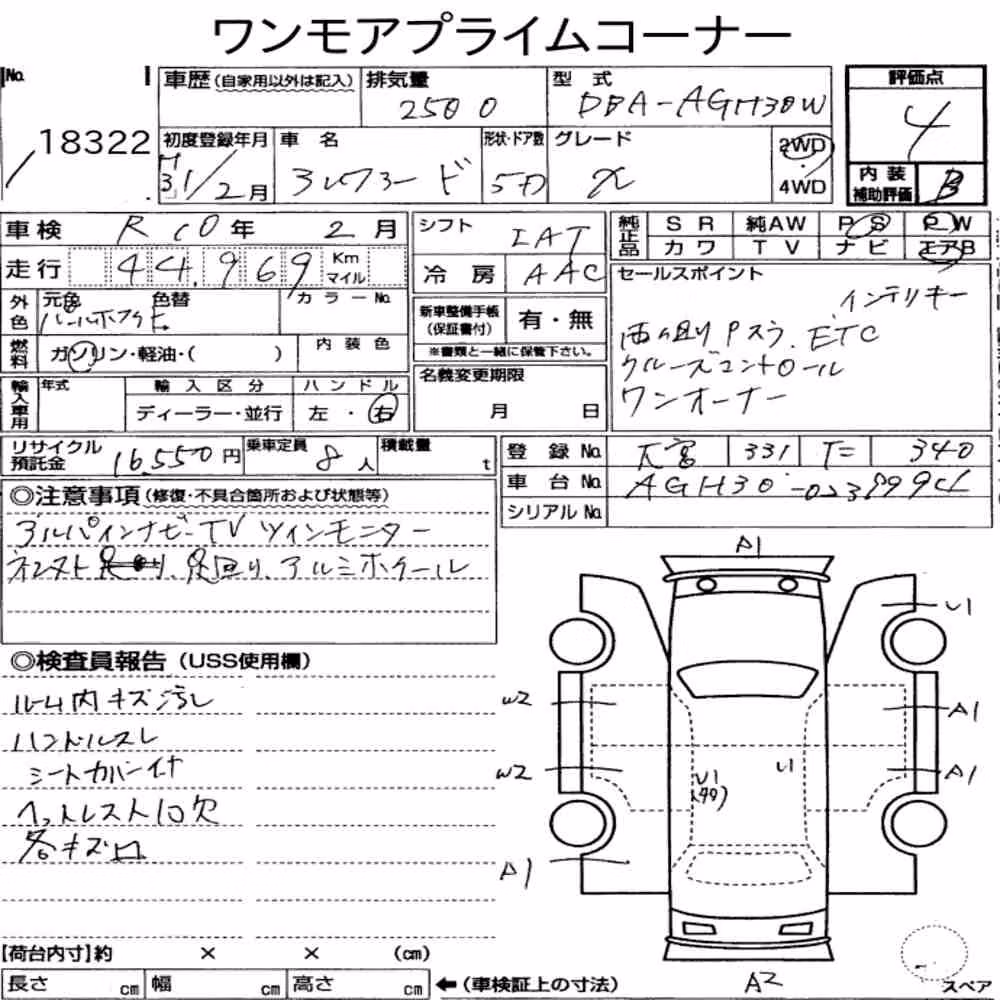 ワンモアプライムコーナー
No. 18322
車歴 (自家用以外は記入) 排気量 2500 型式 DBA-AGH30W 評価点 4
初度登録年月 H31/2月 車名 アルファード 形状・ドア数 5D グレード X 2WD 4WD
内装補助評価 B
車検 R10年 2月 シフト IAT 純正品 SR 純AW PS PW
走行 44,969 Km マイル 冷房 AAC カワ TV ナビ エアB
外色 元色 パールホワイト 色替 カラーNo. セールスポイント
インテリキー
新車整備手帳 (保証書付) 有・無
両側 Pスラ. ETC
燃料 ガソリン・軽油・( ) 内装色 ※書類と一緒に保管下さい。
クルーズコントロール
輸入車用 年式 輸入区分 ハンドル 名義変更期限
ワンオーナー
ディーラー・並行 左・右 月 日
リサイクル預託金 16,550円 乗車定員 8人 積載量 t 登録No. 大宮 331 340
車台No. AGH30-
◎注意事項 (修復・不具合箇所および状態等)
シリアルNo.
アルパインナビ-TV ツインモニター
足回り. アルミホイール
◎検査員報告 (USS使用欄)
ルーム内キズ汚レ
ハンドルスレ
シートカバー付
ヘッドレスト1ロ欠
各キズ凹
A1
U1
W2
A1
W2
A1
U1
U1
A1
A2
【荷台内寸】約 × × (cm)
長さ cm 幅 cm 高さ cm ←(車検証上の寸法)
スペア